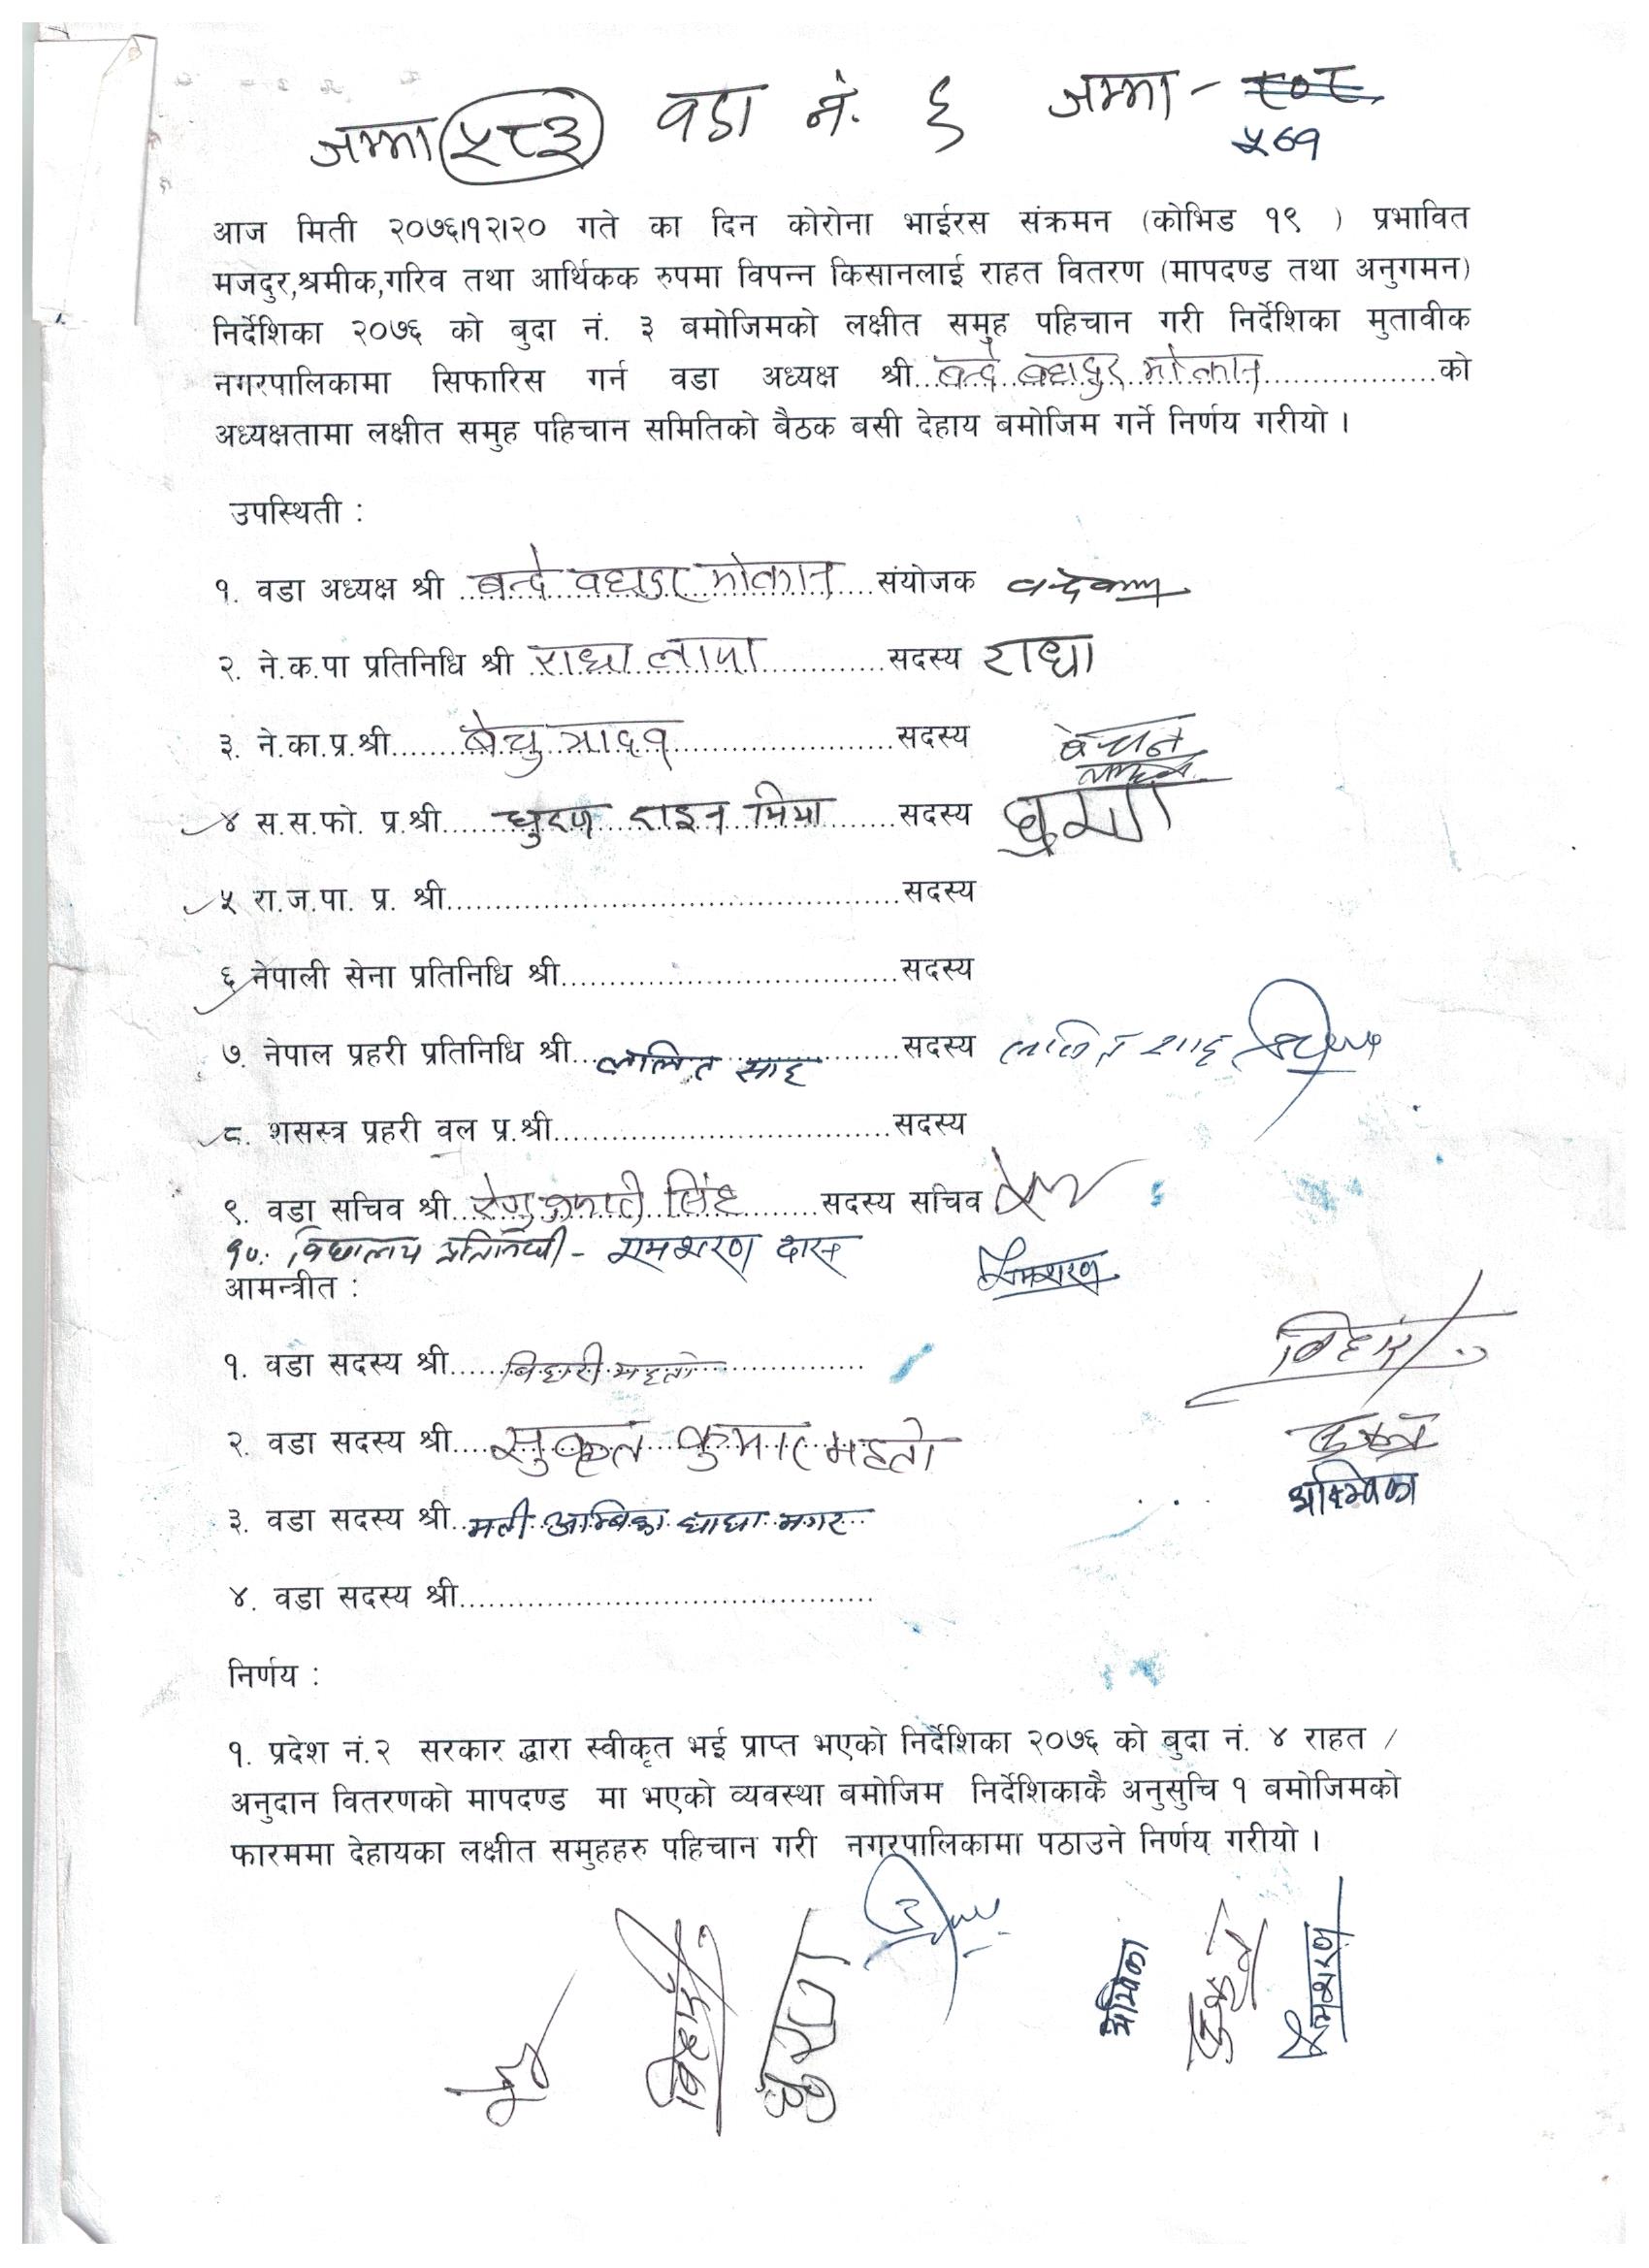 जम्मा ५८३ वडा नं. ६ जम्मा -
५७१
आज मिती २०७६।१२।२० गते का दिन कोरोना भाईरस संक्रमन (कोभिड १९ ) प्रभावित
मजदुर,श्रमीक,गरिव तथा आर्थिकक रुपमा विपन्न किसानलाई राहत वितरण (मापदण्ड तथा अनुगमन)
निर्देशिका २०७६ को बुदा नं. ३ बमोजिमको लक्षीत समुह पहिचान गरी निर्देशिका मुतावीक
नगरपालिकामा सिफारिस गर्न वडा अध्यक्ष श्री..बन्दे बहादुर मोक्तान..................को
अध्यक्षतामा लक्षीत समुह पहिचान समितिको बैठक बसी देहाय बमोजिम गर्ने निर्णय गरीयो ।
उपस्थिती :
१. वडा अध्यक्ष श्री ..बन्दे बहादुर मोक्तान.... संयोजक
२. ने.क.पा प्रतिनिधि श्री राधा लामा.............सदस्य राधा
३. ने.का.प्र.श्री........बेचु यादव......................सदस्य बेचन
४ स.स.फो. प्र.श्री...... घुरण राइन मिया ......सदस्य
५ रा.ज.पा. प्र. श्री..............................................सदस्य
६ नेपाली सेना प्रतिनिधि श्री..................................सदस्य
७. नेपाल प्रहरी प्रतिनिधि श्री...ललित साह........सदस्य ललित साह
८. शसस्त्र प्रहरी वल प्र.श्री..................................सदस्य
९. वडा सचिव श्री..रेणु कुमारी सिंह........सदस्य सचिव
१०. विद्यालय प्रतिनिधी - रामशरण दास रामशरण
आमन्त्रीत :
१. वडा सदस्य श्री......बिहारी महतो.............. बिहारी
२. वडा सदस्य श्री....सुकृत कुमार महतो
३. वडा सदस्य श्री..मती अम्बिका घाघा मगर.. अम्बिका
४. वडा सदस्य श्री..........................................
निर्णय :
१. प्रदेश नं.२ सरकार द्वारा स्वीकृत भई प्राप्त भएको निर्देशिका २०७६ को बुदा नं. ४ राहत /
अनुदान वितरणको मापदण्ड मा भएको व्यवस्था बमोजिम निर्देशिकाकै अनुसुचि १ बमोजिमको
फारममा देहायका लक्षीत समुहहरु पहिचान गरी नगरपालिकामा पठाउने निर्णय गरीयो ।
बिहारी अम्बिका रामशरण